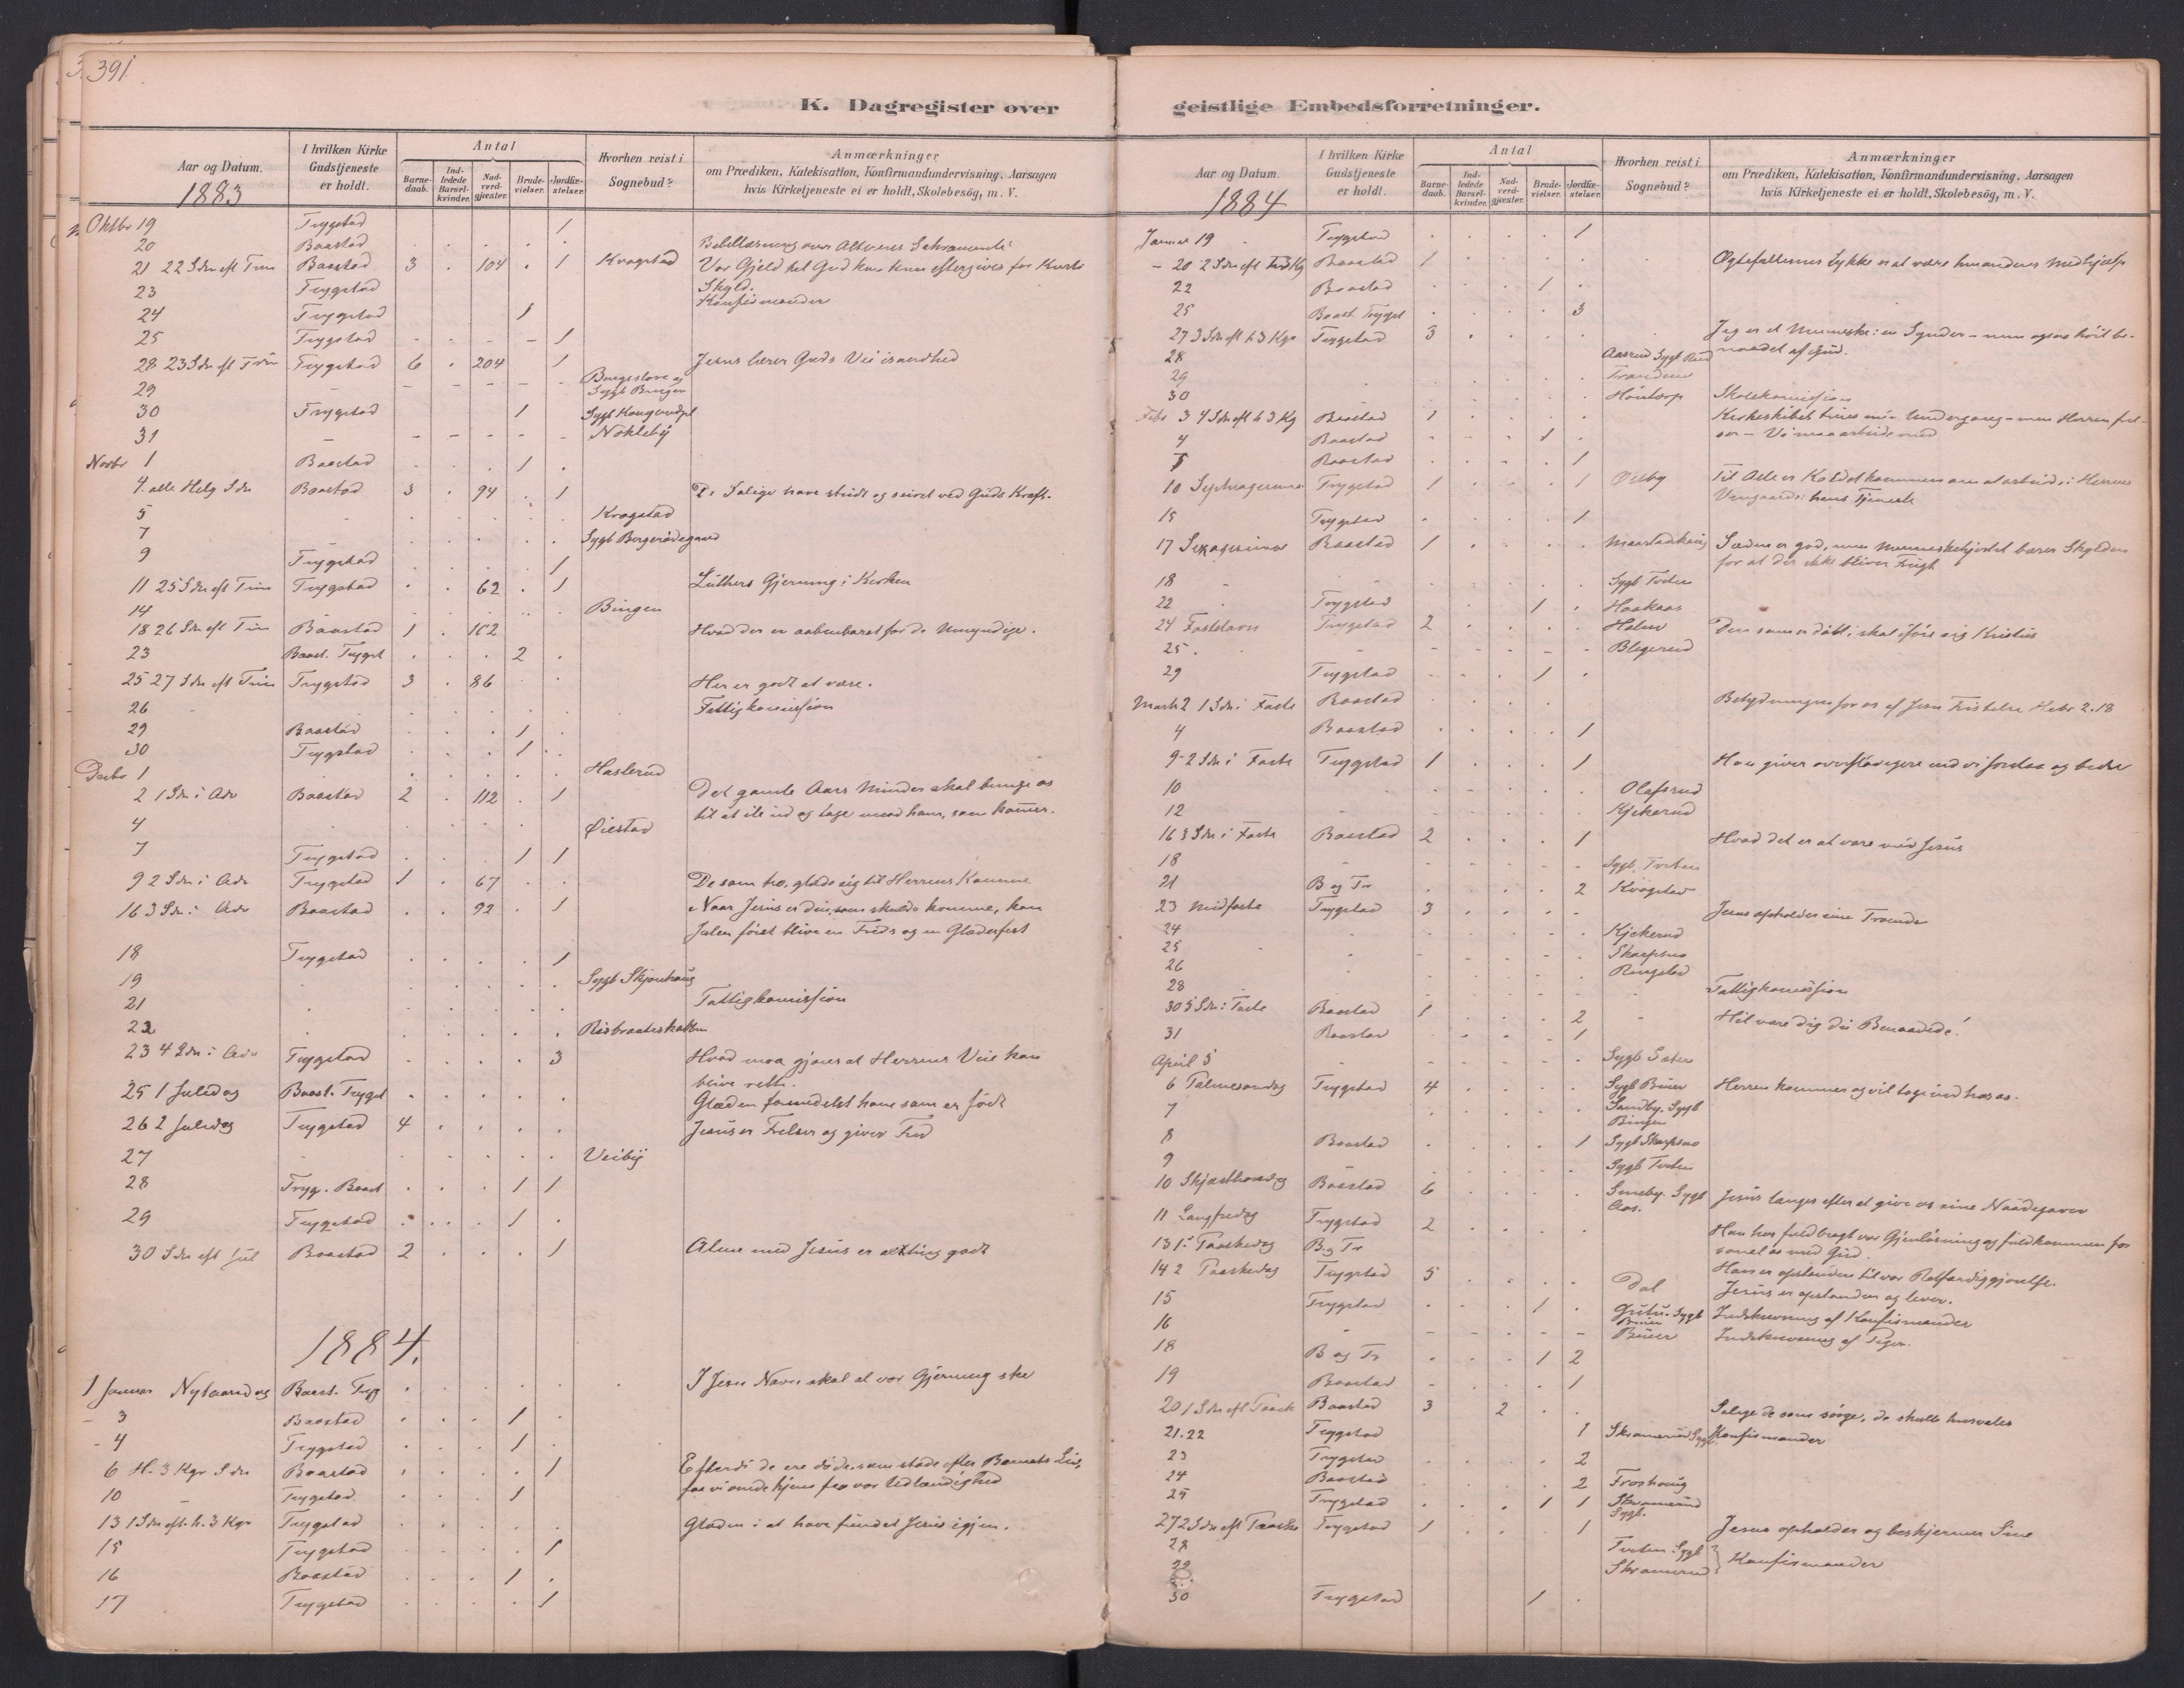 391
K. Dagregister over
Aar og Datum.
1883
I hvilken Kirke Gudstjeneste er holdt.
Antal
Barnedaab.
Indledede Barselkvinder.
Nadverdgjæster.
Brudevielser.
Jordfæstelser.
Hvorhen reist i Sognebud?
Anmærkninger
om Prædiken, Katekisation, Konfirmandundervisning, Aarsagen
hvis Kirketjeneste ei er holdt, Skolebesög, m. V.
Oktbr 19 Trygstad 1
20 Baastad Bibellæsning over Alterens Sakramente
21 22 Sdn eft Trin Baastad 3 104 1 Krogstad Vor Gjeld til Gud kan kun eftergives for Kristi
Skyld.
23 Trygstad Konfirmander
24 Trygstad 1
25 Trygstad 1
28 23 Sdn eft Trin Trygstad 6 204 1 Jesus lærer Guds Vei i sandhed
29 Sygb Bingen
30 Trygstad 1
31 Nokleby
Novbr 1 Baastad 1
4. alle Helg Sdn Baastad 3 94 1 De Salige have stridt og seiret ved Guds Kraft.
5 Krogstad
7 Sygb Bergerødegaard
9 Trygstad 1
11 25 Sdn eft Trin Trygstad 62 1 Luthers Gjerning i Kirken
14 Bingen
18 26 Sdn eft Trin Baastad 1 102 Hvad der er aabenbaret for de Umyndige.
23 Baast. Trygst 2
25 27 Sdn eft Trin Trygstad 3 86 Her er godt at være.
26 Fattigkomission
29 Baastad 1
30 Trygstad 1
Decbr 1 Haslerud
2 1 Sdn i Adv Baastad 2 112 1 Det gamle Aars Minder skal bringe os
til at ile ud og tage mod ham, som kommer.
4 Øiestad
7 Trygstad 1 1
9 2 Sdn i Adv Trygstad 1 67 De som tro, glæde sig til Herrens Komme
16 3 Sdn i Adv Baastad 92 1 Naar Jesus er den, som skulde komme, kan
Julen først blive en Freds og en Glædesfest
18 Trygstad 1
19 Sygb Skjønhaug
21 Fattigkomission
22 Risbraateskatten
23 4 Sdn i Adv Trygstad 3 Hvad maa gjøres at Herrens Veie kan
blive rette.
25 1 Juledag Baast. Trygst Glæden formedelst ham som er født
26 2 Juledag Trygstad 4 Jesus er Frelser og giver Fred
27 Veiby
28 Tryg. Baast 1 1
29 Trygstad 1
30 Sdn eft Jul Baastad 2 1 Alene med Jesus er alting godt
1884.
1 Januar Nytaarsdag Baast. Tryg I Jesu Navn skal al vor Gjerning ske
- 3 Baastad 1
- 4 Trygstad 1
6 H. 3 Kgr Sdn Baastad 1 Efterdi de ere døde, som stode efter Barnets Liv,
10 Trygstad 1
13 1 Sdn eft. h. 3 Kgr Trygstad Glæden i at have fundet Jesus igjen.
15 Trygstad 1
16 Baastad 1
17 Trygstad 1
geistlige Embedsforretninger.
Aar og Datum.
1884
I hvilken Kirke Gudstjeneste er holdt.
Antal
Barnedaab.
Indledede Barselkvinder.
Nadverdgjæster.
Brudevielser.
Jordfæstelser.
Hvorhen reist i Sognebud?
Anmærkninger
om Prædiken, Katekisation, Konfirmandundervisning, Aarsagen
hvis Kirketjeneste ei er holdt, Skolebesög, m. V.
Januar 19 Trygstad 1
- 20 2 Sdn eft Baastad 1 Ægtefællernes Lykke er at være hinandens Medhjælp
22 Baastad 1
25 Baast Trygst 3
27 3 Sdn eft h 3 Kgr Trygstad 3 Jeg er et Menneske: en Synder - men ogsaa høit be-
naadet af Gud.
28 Aasrud Sygb Rud
29 Trandem
30 Hóntorp Skolekomission
Febr 3 4 Sdn eft h 3 Kg Baastad 1
4 Baastad 1
5 Baastad 1
10 Septuagesima Trygstad 1 1
Vingaard: hans Tjeneste
15 Trygstad 1
17 Sexagesima Baastad 1 Sæden er god, men Menneskehjertet bærer Skylden
for at der ikke bliver Frugt
18 Sygb Tveten
22 Trygstad 1 Haakaas
24 Fastelavn Trygstad 2 Den som er døbt, skal iføre sig Kristus
25. Blegerud
29 Trygstad 1
Marts 2 1 Sdn i Faste Baastad Betydningen for os af Jesu Fristelse Hebr 2.18
4 Baastad 1
9 - 2 Sdn i Faste Trygstad 1 1 Han giver overflødigere end vi forstaa og bede
10 Olafsrud
12 Kjekerud
16 3 Sdn i Faste Baastad 2 1 Hvad det er at være med Jesus
18 Sygb. Tveten
21 B og Tr 2 Krogstad
23 Midfaste Trygstad 3 Jesus opholder sine Troende
24 Kjekerud
25 Skarpsno
26 Ringstad
28 Fattigkomission
30 5 Sdn i Faste Baastad 1 2 Hil være dig du Benaadede!
31 Baastad 1
April 5 Sygb Sæter
6 Palmesøndag Trygstad 4 Sygb Buer Herren kommer og vil tage ind hos os.
7 Sandby. Sygb
Bingen
8 Baastad 1 Sygb Skarpsno
9 Sygb Tveten
10 Skjærthorsdag Baastad 6 Smeby. Sygb
Aas. Jesus længes efter at give os sine Naadegaver
11 Langfredag Trygstad 2 Han har fuldbragt vor Gjenløsning og fuldkommen for
sonet os med Gud.
13 1. Paaskedag B. og Tr Han er opstanden til vor Retfærdiggjørelse.
14 2 Paaskedag Trygstad 5 Dal Jesus er opstanden og lever.
15 Trygstad 1 Sygb
Buer Indskrivning af Konfirmander
16 Buer Indskrivning af Piger.
18 B og Tr 1 2
19 Baastad 1
20 1 Sdn eft Paask Baastad 3 2 Salige de som sørge, de skulle husvales
21.22 Trygstad 1 Skramerud Sygb. Konfirmander
23 Trygstad 2
24 Baastad 2 Froshaug
25 Trygstad 1 1 Skramerud
Sygb.
27 2 Sdn eft Paaske Trygstad 1 1 Jesus opholder og beskjermer Sine
28 Tveten Sygb
29 Skramerud } Konfirmander
30 Trygstad 1